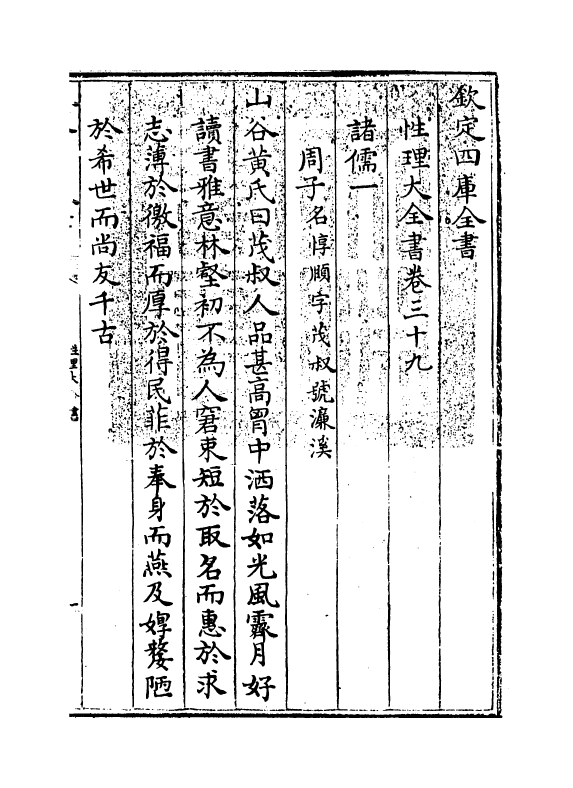 欽定四庫全書
性理大全書卷三十九
諸儒一
周子名惇頥字茂叔號濂溪
山谷黄氏曰茂叔人品甚高胷中洒落如光風霽月好
讀書雅意林壑初不為人窘束短於取名而惠於求
志薄於徼福而厚於得民菲於奉身而燕及㷀嫠陋
於希世而尚友千古
性理大全書
一